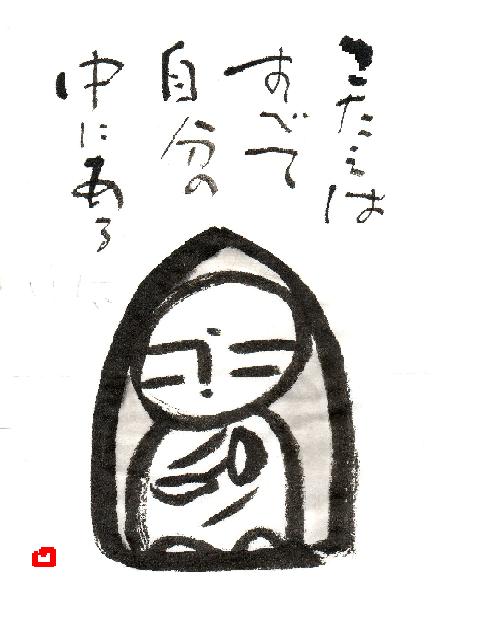 こたえは
すべて
自分の
中にある